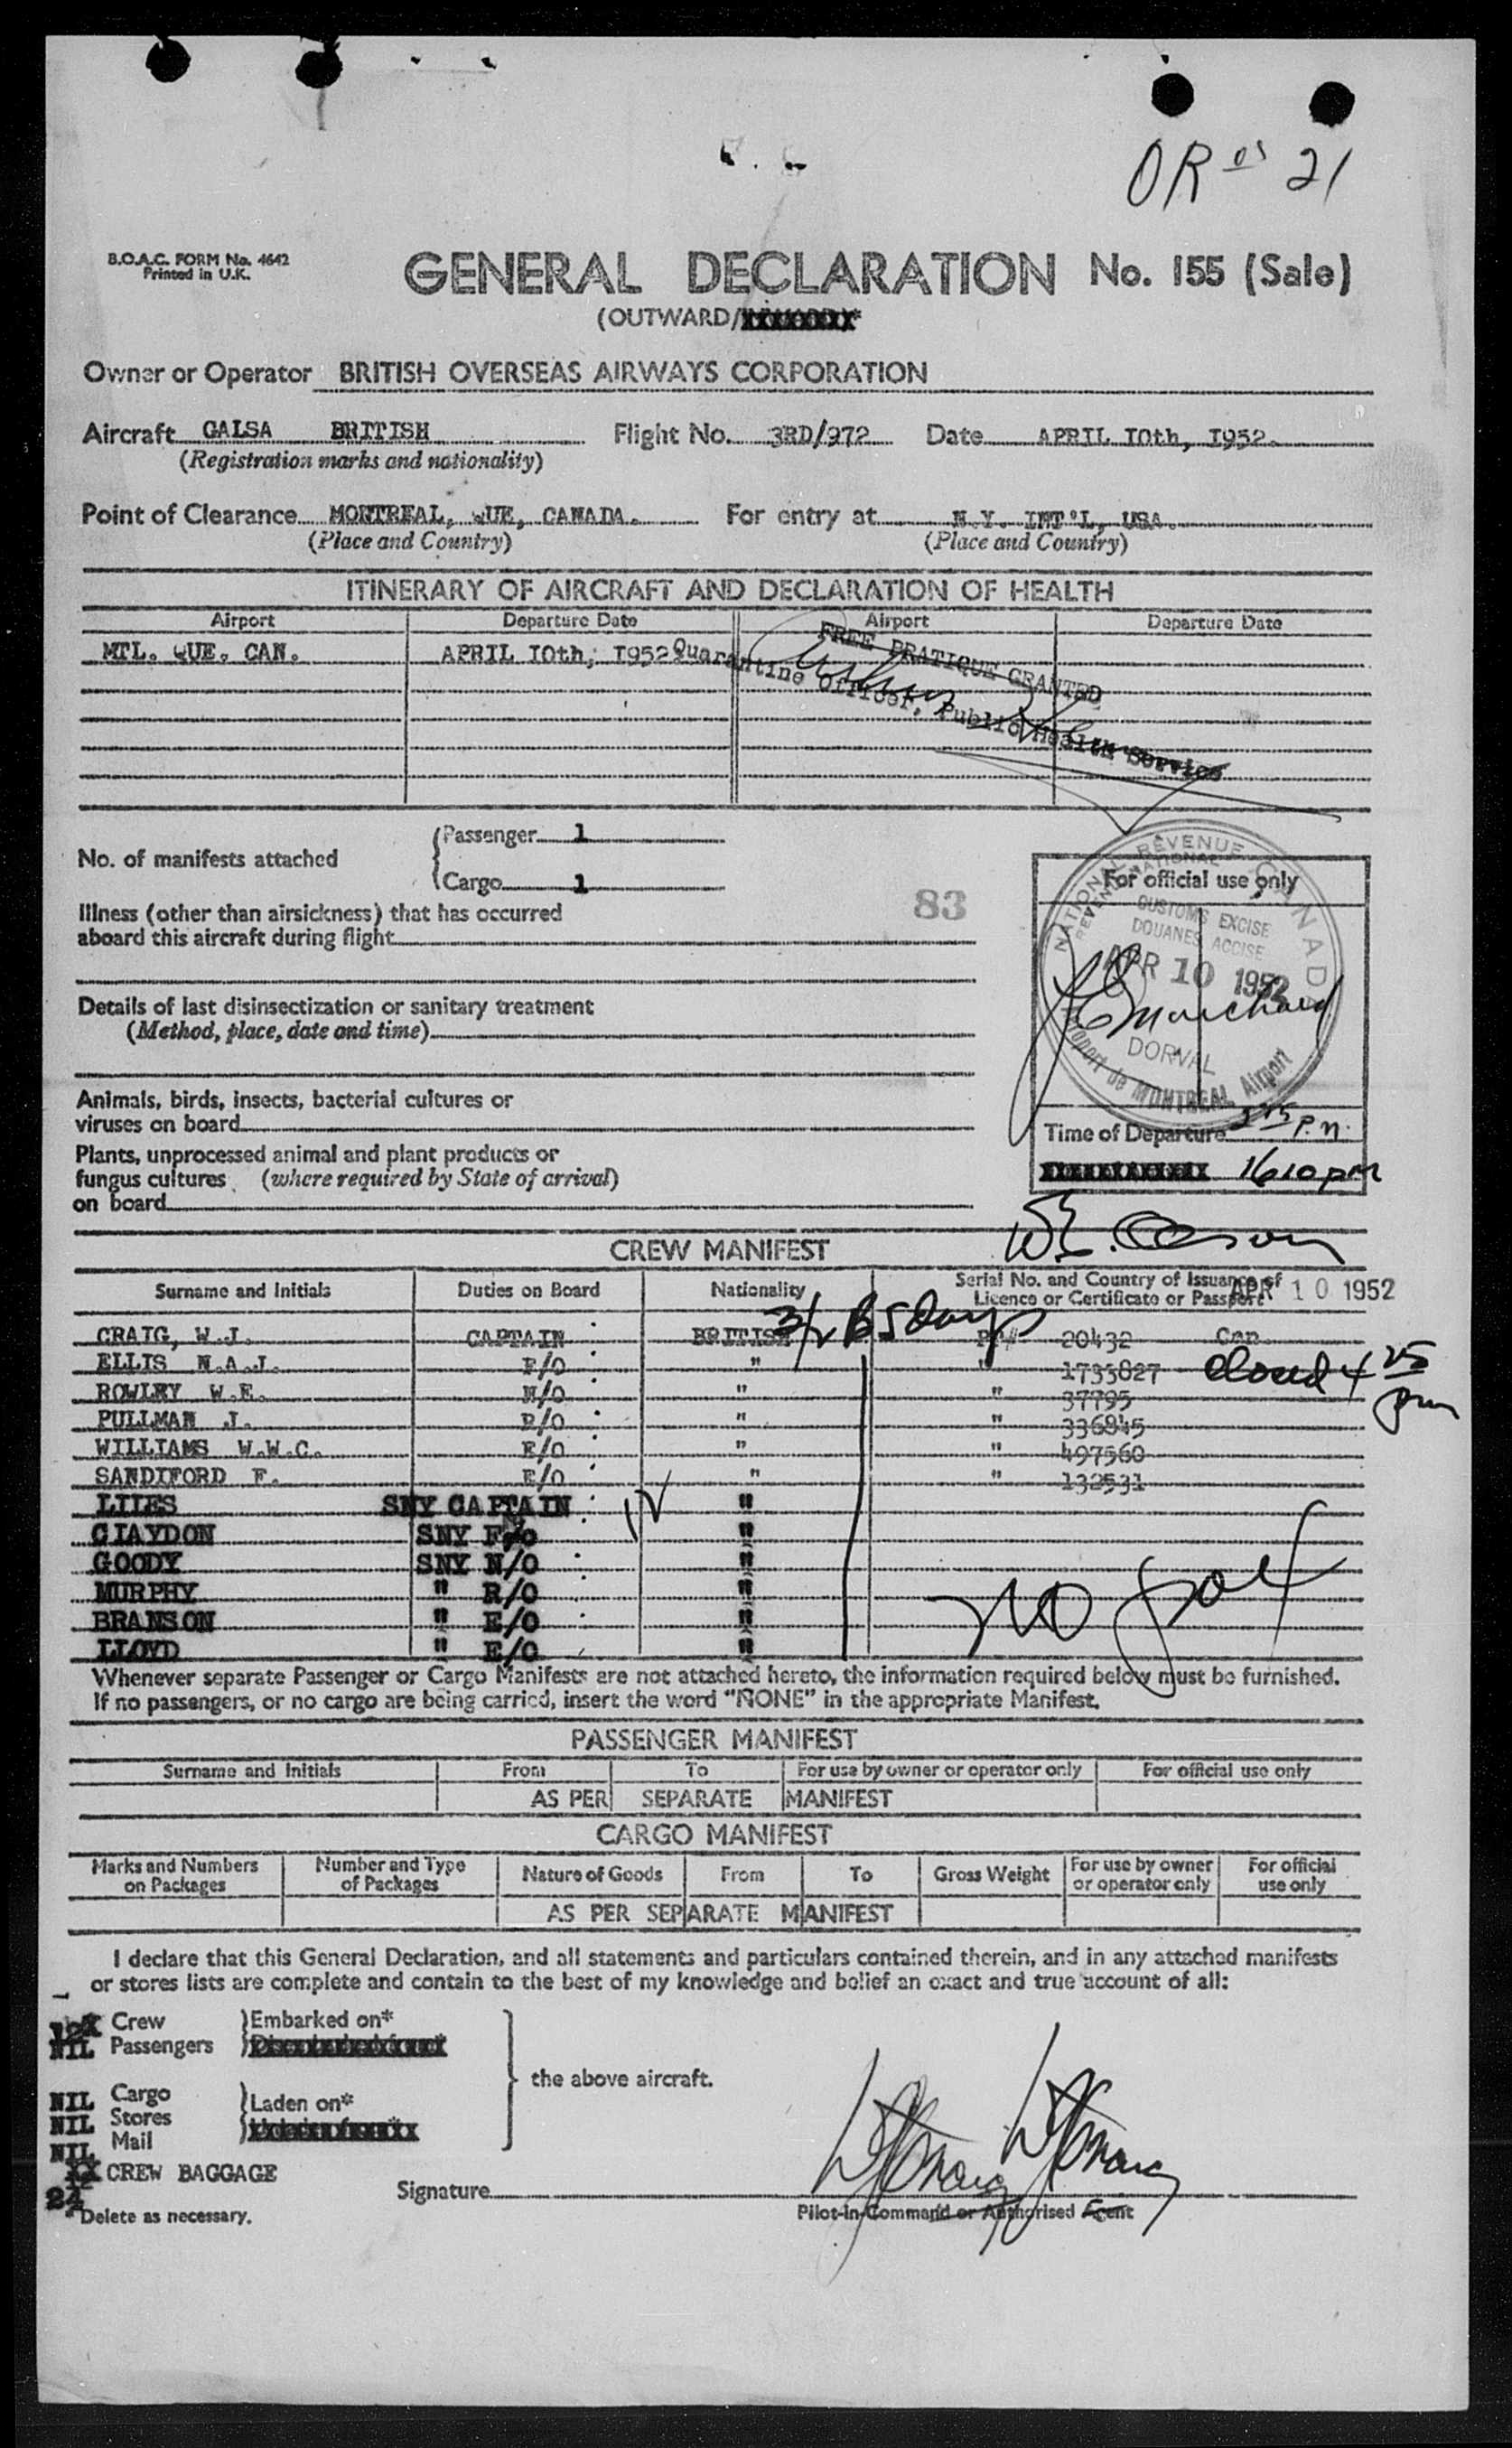 OR 21
B.O.A.C. FORM No. 4642
Printed in U.K.
GENERAL DECLARATION No. 155 (Sale)
(OUTWARD/
Owner or Operator BRITISH OVERSEAS AIRWAYS CORPORATION
Aircraft GALSA BRITISH Flight No. 3RD/972 Date APRIL IOth, I952.
(Registration marks and nationality)
Point of Clearance MONTREAL, QUE, CANADA. For entry at N.Y. INT'L, USA.
(Place and Country) (Place and Country)
ITINERARY OF AIRCRAFT AND DECLARATION OF HEALTH
Airport Departure Date Airport Departure Date
MTL. QUE. CAN. APRIL IOth, I952
FREE PRATIQUE GRANTED
Quarantine Officer, Public Health Service
No. of manifests attached
Passenger 1
Cargo 1
83
Illness (other than airsickness) that has occurred
aboard this aircraft during flight
Details of last disinsectization or sanitary treatment
(Method, place, date and time)
Animals, birds, insects, bacterial cultures or
viruses on board
Plants, unprocessed animal and plant products or
fungus cultures (where required by State of arrival)
on board
For official use only
NATIONAL REVENUE CANADA
CUSTOMS EXCISE
DOUANES ACCISE
APR 10 1952
DORVAL
de MONTREAL Airport
Time of Departure P.M.
1610 pm
CREW MANIFEST
Surname and Initials Duties on Board Nationality Serial No. and Country of Issuance of
Licence or Certificate or Passport
APR 10 1952
CRAIG, W.J. CAPTAIN BRITISH PP# 20432 Can
ELLIS N.A.J. F/O " " 1735827
ROWLEY W.E. N/O " " 37795
PULLMAN J. R/O " " 336845
WILLIAMS W.W.C. E/O " " 497560
SANDIFORD F. E/O " " 132531
3/2 B 5 days
closed 4 25 pm
LILES SNY CAPTAIN "
CLAYDON SNY F/O "
GOODY SNY N/O "
MURPHY " R/O "
BRANSON " E/O "
LLOYD " E/O "
Whenever separate Passenger or Cargo Manifests are not attached hereto, the information required below must be furnished.
If no passengers, or no cargo are being carried, insert the word "NONE" in the appropriate Manifest.
PASSENGER MANIFEST
Surname and Initials From To For use by owner or operator only For official use only
AS PER SEPARATE MANIFEST
CARGO MANIFEST
Marks and Numbers on Packages Number and Type of Packages Nature of Goods From To Gross Weight For use by owner or operator only For official use only
AS PER SEPARATE MANIFEST
I declare that this General Declaration, and all statements and particulars contained therein, and in any attached manifests
or stores lists are complete and contain to the best of my knowledge and belief an exact and true account of all:
12 Crew Embarked on*
NIL Passengers
the above aircraft.
NIL Cargo Laden on*
NIL Stores
NIL Mail
XX CREW BAGGAGE
24
Signature
Pilot-in-Command or Authorised Agent
*Delete as necessary.